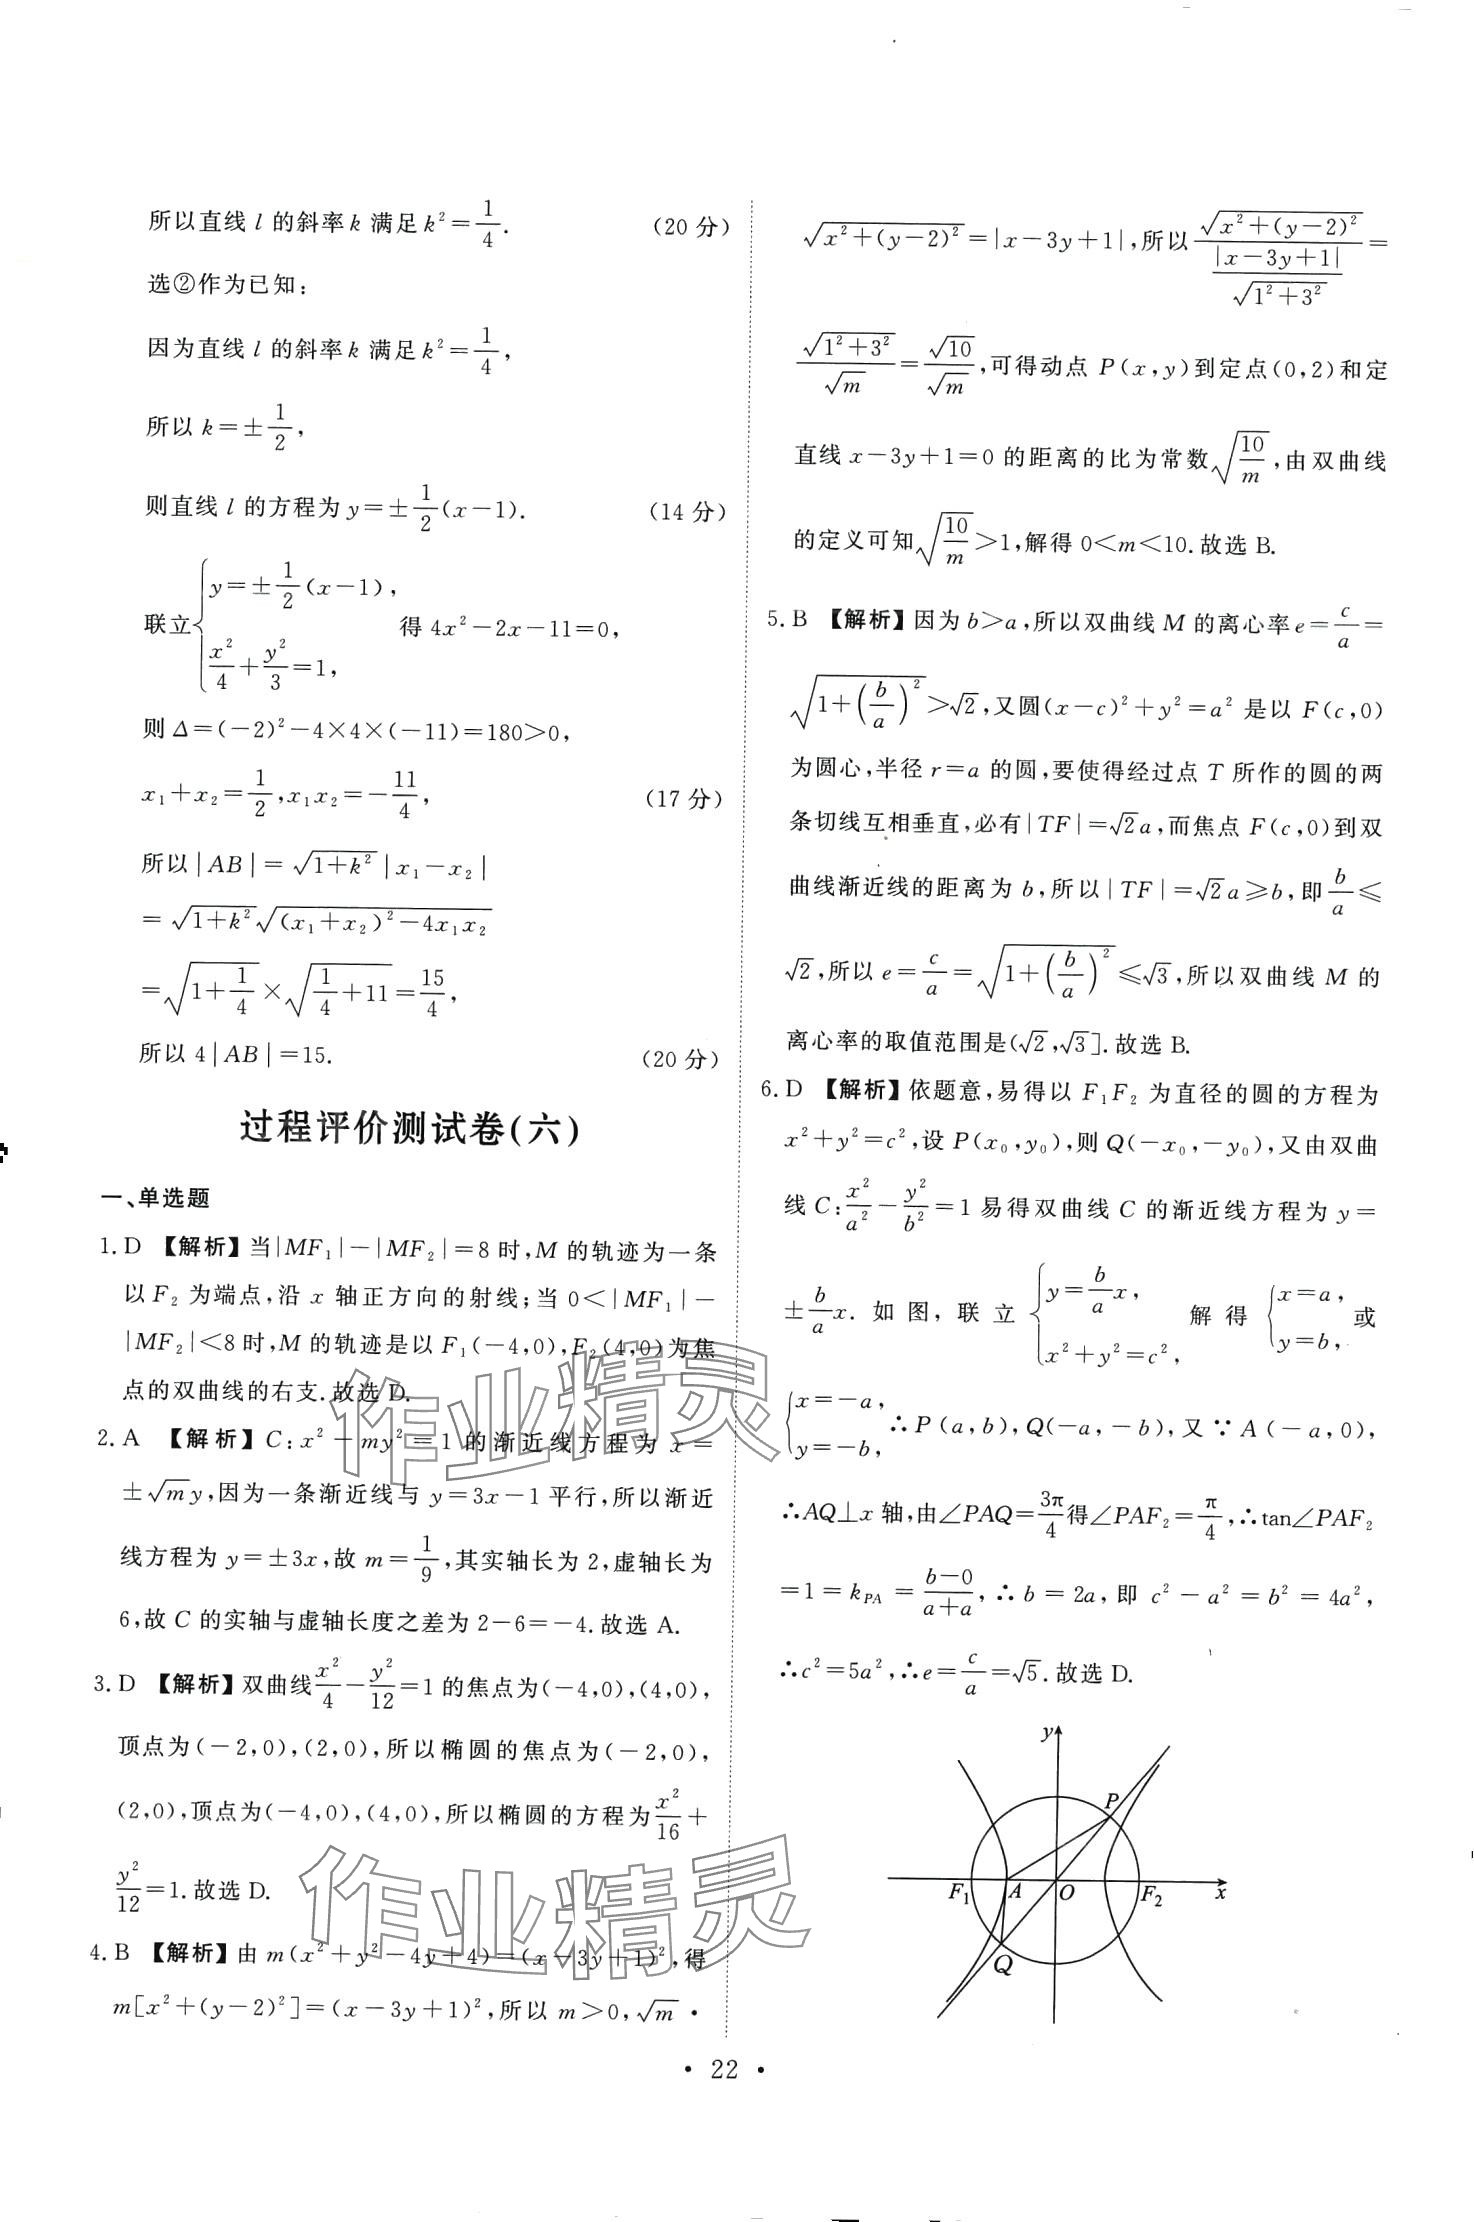 所以直线 l 的斜率 k 满足 k²=1/4. (20 分)
选②作为已知:
因为直线 l 的斜率 k 满足 k²=1/4,
所以 k=±1/2,
则直线 l 的方程为 y=±1/2(x-1). (14 分)
联立{y=±1/2(x-1), x²/4+y²/3=1, 得 4x²-2x-11=0,
则 Δ=(-2)²-4×4×(-11)=180>0,
x₁+x₂=1/2,x₁x₂=-11/4, (17 分)
所以|AB|=√(1+k²)|x₁-x₂|
=√(1+k²)√((x₁+x₂)²-4x₁x₂)
=√(1+1/4)×√(1/4+11)=15/4,
所以 4|AB|=15. (20 分)
过程评价测试卷(六)
一、单选题
1. D 【解析】当|MF₁|-|MF₂|=8 时,M 的轨迹为一条
以 F₂ 为端点,沿 x 轴正方向的射线;当 0<|MF₁|-
|MF₂|<8 时,M 的轨迹是以 F₁(-4,0),F₂(4,0)为焦
点的双曲线的右支.故选 D.
2. A 【解析】C:x²-my²=1 的渐近线方程为 x=
±√m y,因为一条渐近线与 y=3x-1 平行,所以渐近
线方程为 y=±3x,故 m=1/9,其实轴长为 2,虚轴长为
6,故 C 的实轴与虚轴长度之差为 2-6=-4.故选 A.
3. D 【解析】双曲线x²/4-y²/12=1 的焦点为(-4,0),(4,0),
顶点为(-2,0),(2,0),所以椭圆的焦点为(-2,0),
(2,0),顶点为(-4,0),(4,0),所以椭圆的方程为x²/16+
y²/12=1.故选 D.
4. B 【解析】由 m(x²+y²-4y+4)=(x-3y+1)²,得
m[x²+(y-2)²]=(x-3y+1)²,所以 m>0,√m·
√(x²+(y-2)²)=|x-3y+1|,所以√(x²+(y-2)²)/(|x-3y+1|/√(1²+3²))=
√(1²+3²)/√m=√10/√m,可得动点 P(x,y)到定点(0,2)和定
直线 x-3y+1=0 的距离的比为常数√(10/m),由双曲线
的定义可知√(10/m)>1,解得 0<m<10.故选 B.
5. B 【解析】因为 b>a,所以双曲线 M 的离心率 e=c/a=
√(1+(b/a)²)>√2,又圆(x-c)²+y²=a² 是以 F(c,0)
为圆心,半径 r=a 的圆,要使得经过点 T 所作的圆的两
条切线互相垂直,必有|TF|=√2a,而焦点 F(c,0)到双
曲线渐近线的距离为 b,所以|TF|=√2a≥b,即b/a≤
√2,所以 e=c/a=√(1+(b/a)²)≤√3,所以双曲线 M 的
离心率的取值范围是(√2,√3].故选 B.
6. D 【解析】依题意,易得以 F₁F₂ 为直径的圆的方程为
x²+y²=c²,设 P(x₀,y₀),则 Q(-x₀,-y₀),又由双曲
线 C:x²/a²-y²/b²=1 易得双曲线 C 的渐近线方程为 y=
±b/a x. 如图,联立{y=b/a x, x²+y²=c², 解得{x=a, y=b, 或
{x=-a, y=-b, ∴P(a,b),Q(-a,-b),又∵A(-a,0),
∴AQ⊥x 轴,由∠PAQ=3π/4得∠PAF₂=π/4,∴tan∠PAF₂
=1=k_PA=(b-0)/(a+a),∴b=2a,即 c²-a²=b²=4a²,
∴c²=5a²,∴e=c/a=√5.故选 D.
y
P
F₁
A
O
F₂
x
Q
作业精灵
作业精灵
·22·